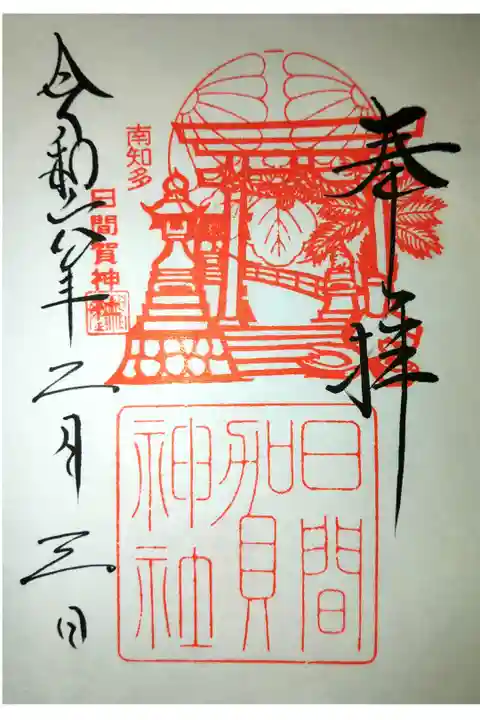 奉拝
南知多
日間賀神社
日間
賀
神社
令和六年二月三日